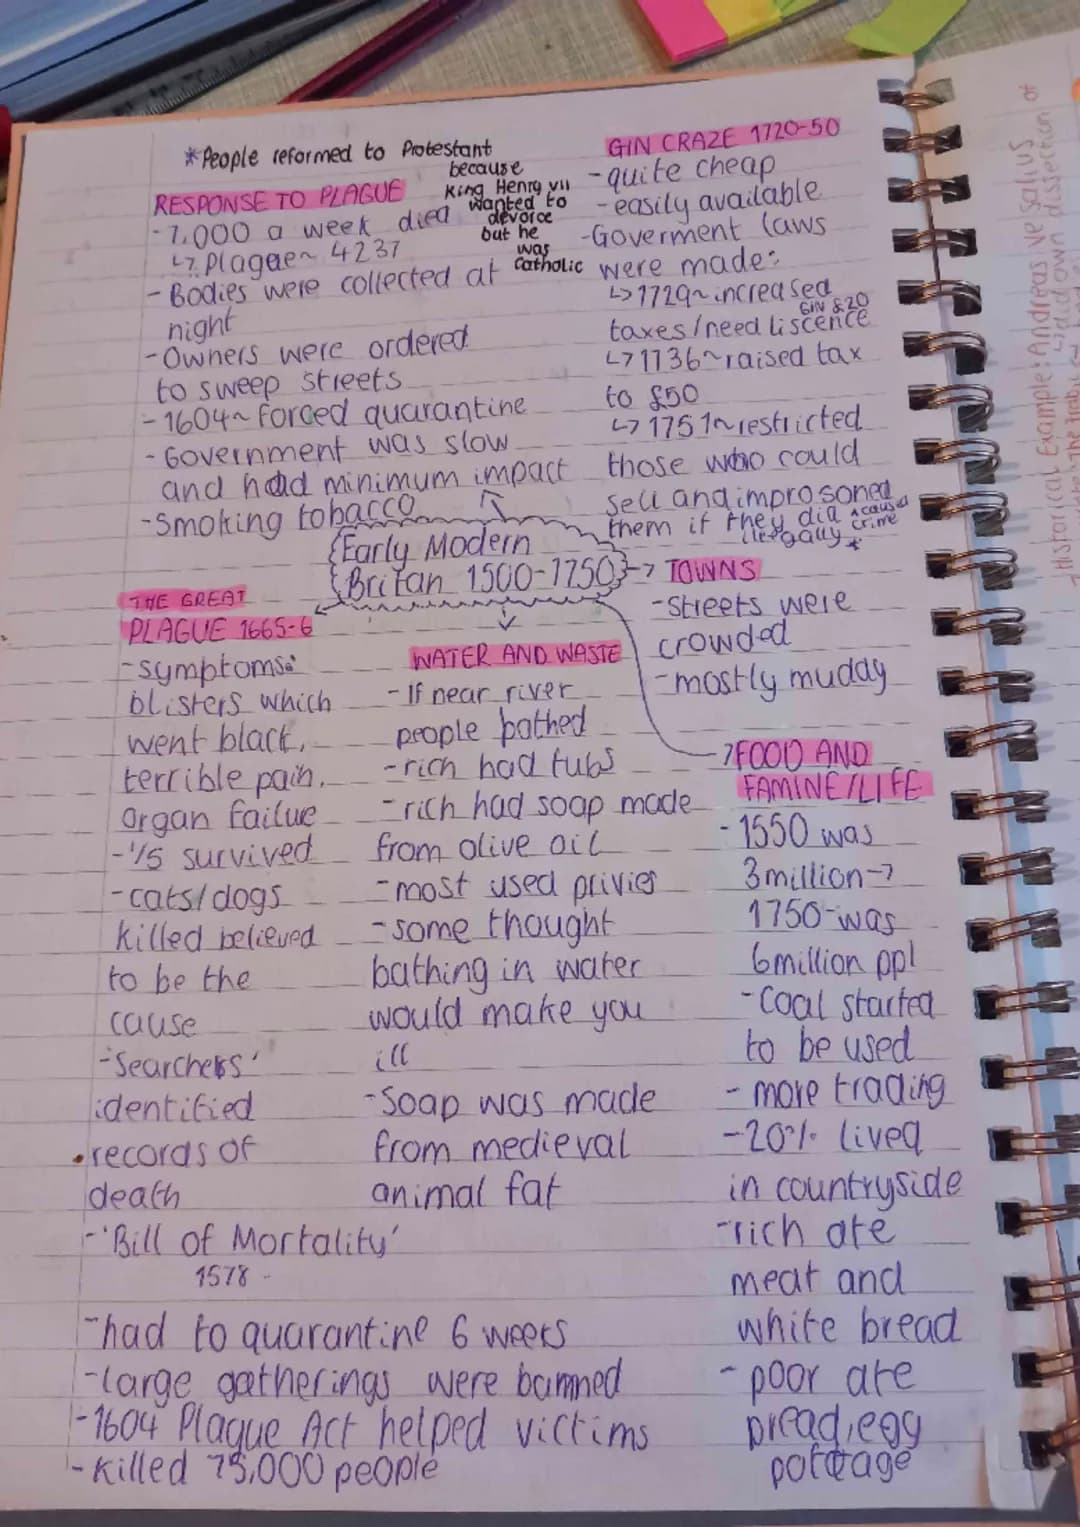 *People reformed to Protestant
because
King Henry VII
wanted to
devorce
but he
was
Catholic
RESPONSE TO PLAGUE
-7,000 a week died
↳ Plague~ 4237
- Bodies were collected at
night
-Owners were ordered
to sweep streets
- 1604~ forced quarantine
- Government was slow
and had minimum impact
-Smoking tobacco
GIN CRAZE 1720-50
-quite cheap
-easily available
-Goverment laws
were made:
↳1729~increased
GIN £20
taxes/need liscence
↳1736~raised tax
to £50
↳1751~restricted
those who could
sell and improsoned
them if they did
illegally *
*caused
crime
Early Modern
Britan 1500-1750
→ TOWNS
-Streets were
crowded
-mostly muddy
THE GREAT
PLAGUE 1665-6
-symptoms:
blisters which
went black,
terrible pain,
organ failue
-1/5 survived
-cats/dogs
killed believed
to be the
cause
-'Searchers'
identified
•records of
death
-'Bill of Mortality'
1578
-had to quarantine 6 weeks
-large gatherings were banned
-1604 Plague Act helped victims
-Killed 75,000 people
WATER AND WASTE
-If near river
people bathed
-rich had tubs
-rich had soap made
from olive oil
-most used privies
-some thought
bathing in water
would make you
ill
-Soap was made
from medieval
animal fat
→FOOD AND
FAMINE/LIFE
- 1550 was
3million→
1750-was
6million ppl
-Coal started
to be used
- more trading
-20% lived
in countryside
-rich ate
meat and
white bread
- poor ate
bread, egg
pottage
Historical Example: Andreas Vesalius
↳did own dissection of